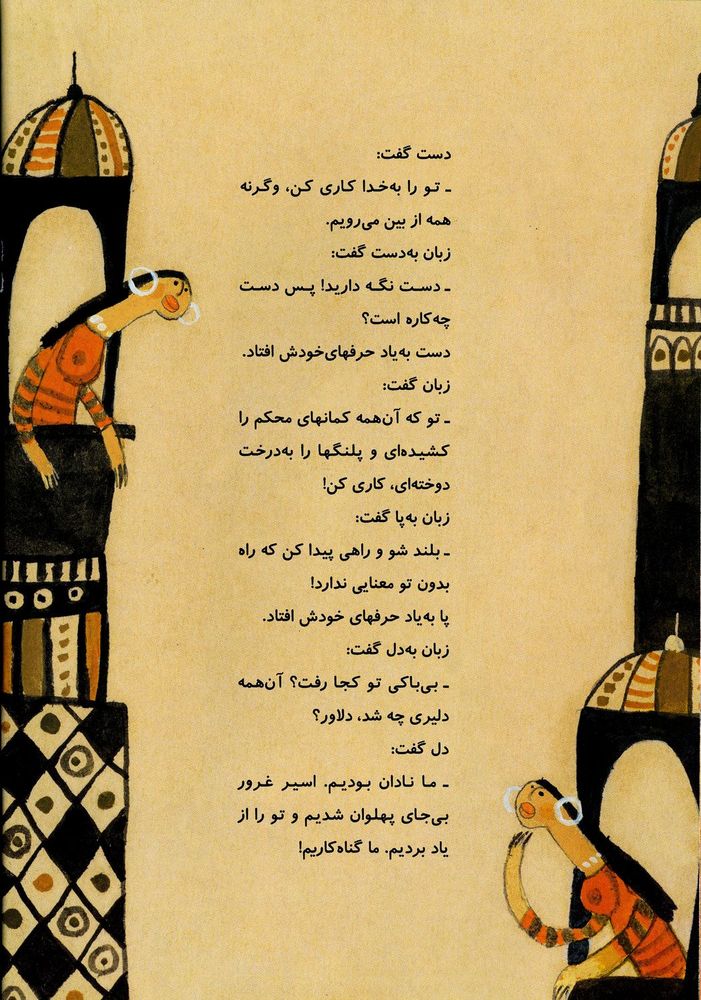 دست گفت:
ـ تو را به‌خدا کاری کن، وگرنه
همه از بین می‌رویم.
زبان به‌دست گفت:
ـ دست نگه دارید! پس دست
چه‌کاره است؟
دست به‌یاد حرفهای‌خودش افتاد.
زبان گفت:
ـ تو که آن‌همه کمانهای محکم را
کشیده‌ای و پلنگها را به‌درخت
دوخته‌ای، کاری کن!
زبان به‌پا گفت:
ـ بلند شو و راهی پیدا کن که راه
بدون تو معنایی ندارد!
پا به‌یاد حرفهای خودش افتاد.
زبان به‌دل گفت:
ـ بی‌باکی تو کجا رفت؟ آن‌همه
دلیری چه شد، دلاور؟
دل گفت:
ـ ما نادان بودیم. اسیر غرور
بی‌جای پهلوان شدیم و تو را از
یاد بردیم. ما گناه‌کاریم!